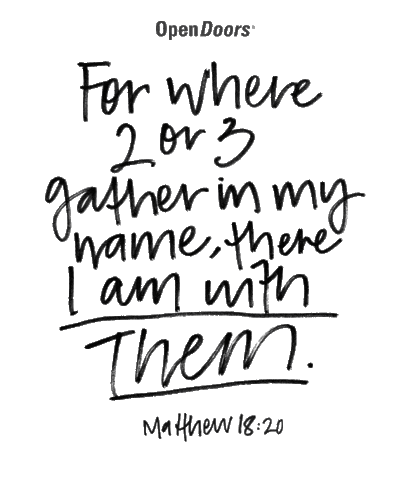 OpenDoors
For where
2 or 3
gather in my
name, there
I am with
Them.
Matthew 18:20